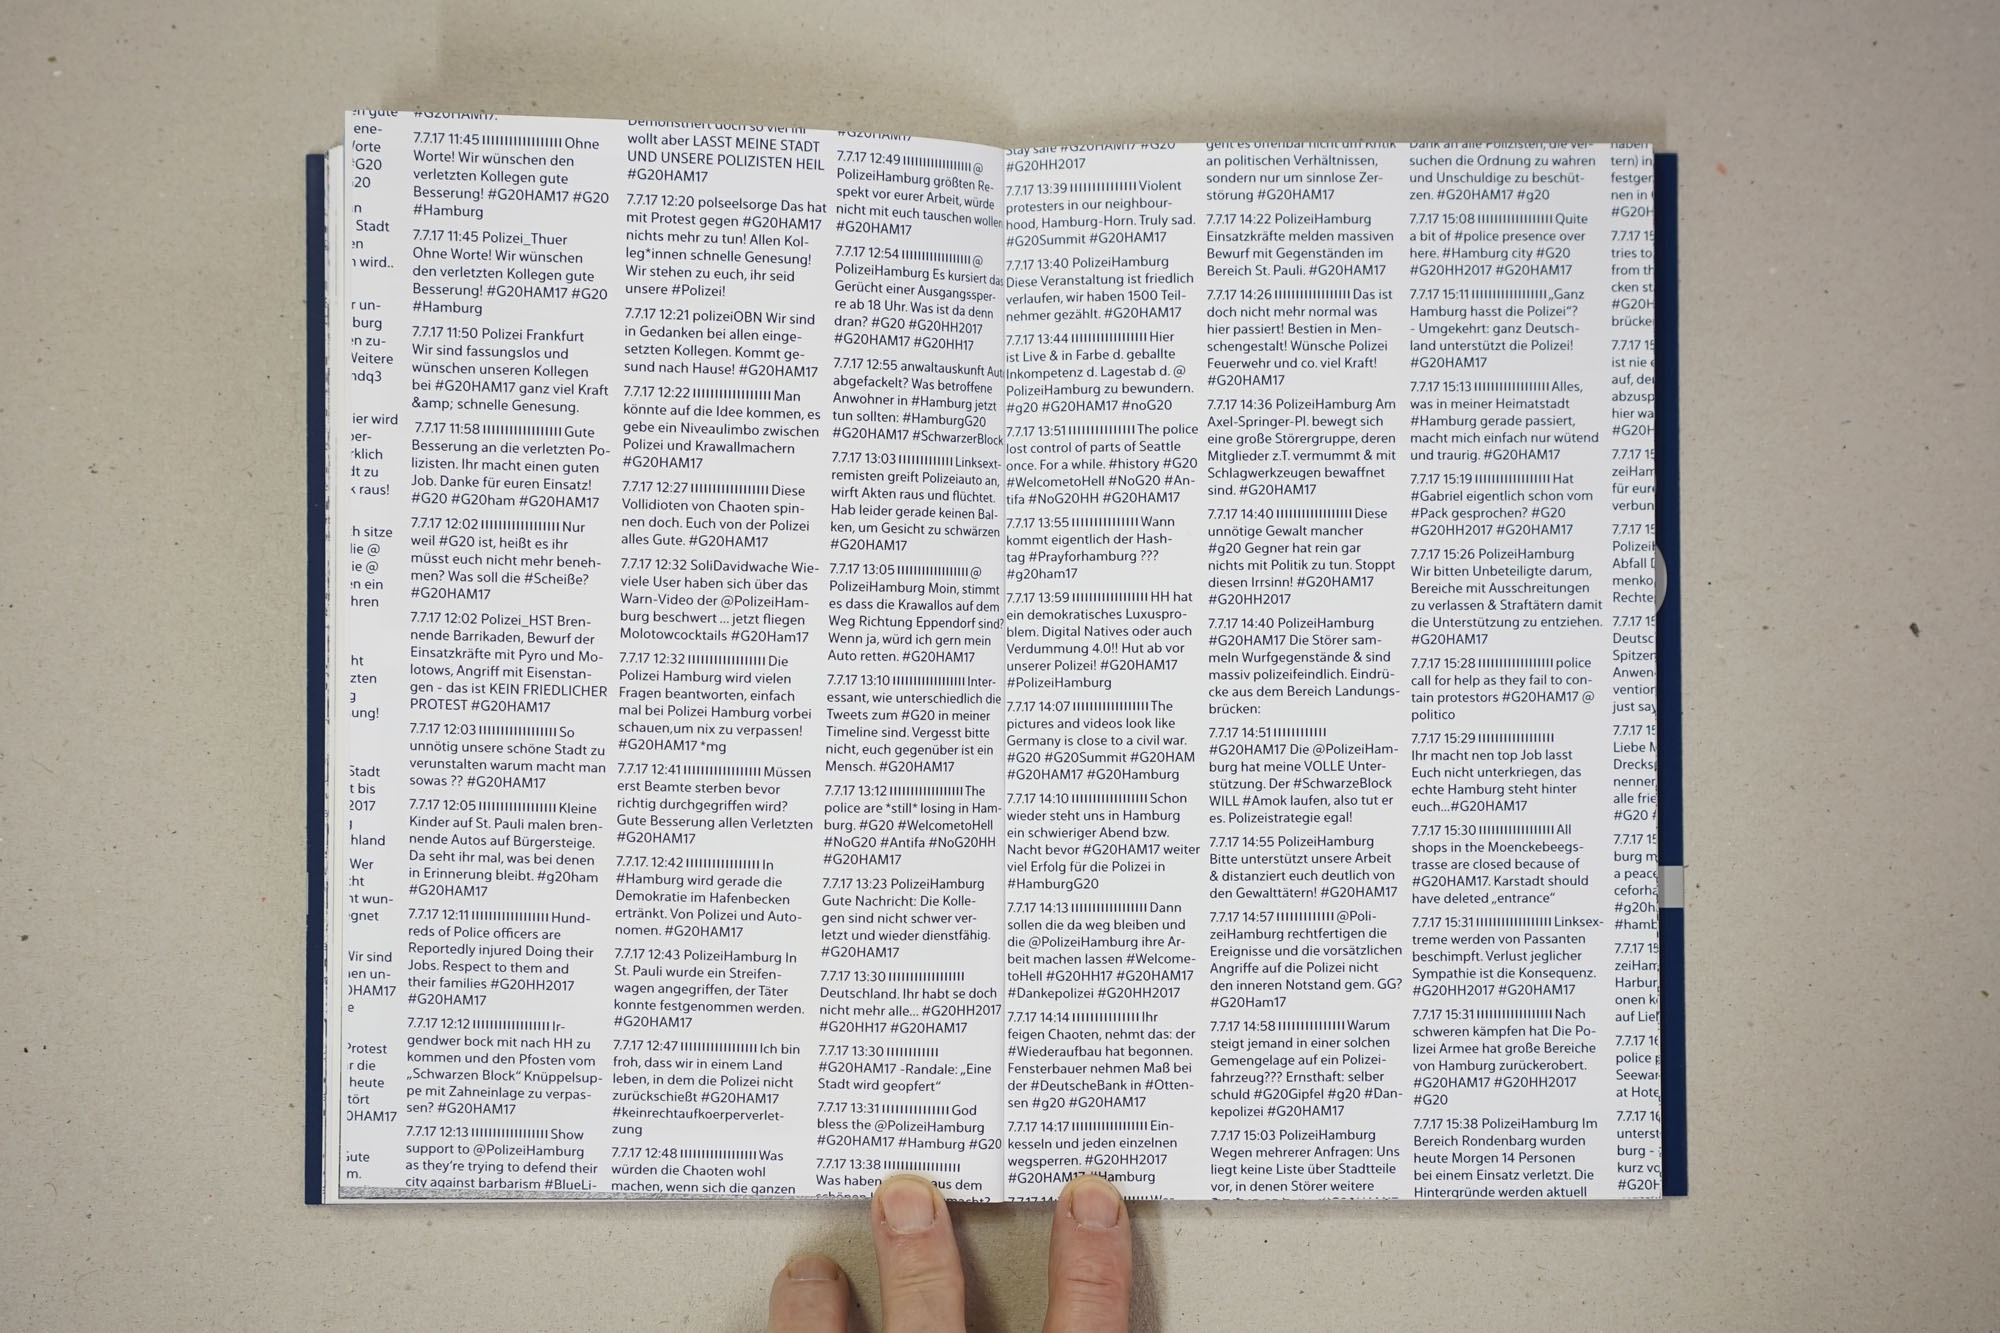 en gute
ene-
Worte
#G20
20
n
Stadt
en
n wird..
r un-
burg
en zu-
Weitere
ndq3
ier wird
per-
rklich
dt zu
k raus!
h sitze
lie @
ie @
n ein
hren
ht
zten
g
ung!
Stadt
t bis
2017
hland
Wer
ht
ht wun-
gnet
Wir sind
en un-
HAM17
e
Protest
r die
heute
tört
HAM17
Gute
m.
#G20HAM17.
7.7.17 11:45 IIIIIIIIIIIIIIIII Ohne
Worte! Wir wünschen den
verletzten Kollegen gute
Besserung! #G20HAM17 #G20
#Hamburg
7.7.17 11:45 Polizei_Thuer
Ohne Worte! Wir wünschen
den verletzten Kollegen gute
Besserung! #G20HAM17 #G20
#Hamburg
7.7.17 11:50 Polizei Frankfurt
Wir sind fassungslos und
wünschen unseren Kollegen
bei #G20HAM17 ganz viel Kraft
&amp; schnelle Genesung.
7.7.17 11:58 IIIIIIIIIIIIIIIII Gute
Besserung an die verletzten Po-
lizisten. Ihr macht einen guten
Job. Danke für euren Einsatz!
#G20 #G20ham #G20HAM17
7.7.17 12:02 IIIIIIIIIIIIIIIII Nur
weil #G20 ist, heißt es ihr
müsst euch nicht mehr beneh-
men? Was soll die #Scheiße?
#G20HAM17
7.7.17 12:02 Polizei_HST Bren-
nende Barrikaden, Bewurf der
Einsatzkräfte mit Pyro und Mo-
lotows, Angriff mit Eisenstan-
gen - das ist KEIN FRIEDLICHER
PROTEST #G20HAM17
7.7.17 12:03 IIIIIIIIIIIIIIIII So
unnötig unsere schöne Stadt zu
verunstalten warum macht man
sowas ?? #G20HAM17
7.7.17 12:05 IIIIIIIIIIIIIIIII Kleine
Kinder auf St. Pauli malen bren-
nende Autos auf Bürgersteige.
Da seht ihr mal, was bei denen
in Erinnerung bleibt. #g20ham
#G20HAM17
7.7.17 12:11 IIIIIIIIIIIIIIIII Hund-
reds of Police officers are
Reportedly injured Doing their
Jobs. Respect to them and
their families #G20HH2017
#G20HAM17
7.7.17 12:12 IIIIIIIIIIIIIIIII Ir-
gendwer bock mit nach HH zu
kommen und den Pfosten vom
„Schwarzen Block“ Knüppelsup-
pe mit Zahneinlage zu verpas-
sen? #G20HAM17
7.7.17 12:13 IIIIIIIIIIIIIIIII Show
support to @PolizeiHamburg
as they're trying to defend their
city against barbarism #BlueLi-
Demonstriert doch so viel ihr
wollt aber LASST MEINE STADT
UND UNSERE POLIZISTEN HEIL
#G20HAM17
7.7.17 12:20 polseelsorge Das hat
mit Protest gegen #G20HAM17
nichts mehr zu tun! Allen Kol-
leg*innen schnelle Genesung!
Wir stehen zu euch, ihr seid
unsere #Polizei!
7.7.17 12:21 polizeiOBN Wir sind
in Gedanken bei allen einge-
setzten Kollegen. Kommt ge-
sund nach Hause! #G20HAM17
7.7.17 12:22 IIIIIIIIIIIIIIIII Man
könnte auf die Idee kommen, es
gebe ein Niveaulimbo zwischen
Polizei und Krawallmachern
#G20HAM17
7.7.17 12:27 IIIIIIIIIIIIIIIII Diese
Vollidioten von Chaoten spin-
nen doch. Euch von der Polizei
alles Gute. #G20HAM17
7.7.17 12:32 SoliDavidwache Wie-
viele User haben sich über das
Warn-Video der @PolizeiHam-
burg beschwert ... jetzt fliegen
Molotowcocktails #G20Ham17
7.7.17 12:32 IIIIIIIIIIIIIIIII Die
Polizei Hamburg wird vielen
Fragen beantworten, einfach
mal bei Polizei Hamburg vorbei
schauen,um nix zu verpassen!
#G20HAM17 *mg
7.7.17 12:41 IIIIIIIIIIIIIIIII Müssen
erst Beamte sterben bevor
richtig durchgegriffen wird?
Gute Besserung allen Verletzten
#G20HAM17
7.7.17. 12:42 IIIIIIIIIIIIIIIII In
#Hamburg wird gerade die
Demokratie im Hafenbecken
ertränkt. Von Polizei und Auto-
nomen. #G20HAM17
7.7.17 12:43 PolizeiHamburg In
St. Pauli wurde ein Streifen-
wagen angegriffen, der Täter
konnte festgenommen werden.
#G20HAM17
7.7.17 12:47 IIIIIIIIIIIIIIIII Ich bin
froh, dass wir in einem Land
leben, in dem die Polizei nicht
zurückschießt #G20HAM17
#keinrechtaufkoerperverlet-
zung
7.7.17 12:48 IIIIIIIIIIIIIIIII Was
würden die Chaoten wohl
machen, wenn sich die ganzen
#G20HAM17
7.7.17 12:49 IIIIIIIIIIIIIIIII @
PolizeiHamburg größten Re-
spekt vor eurer Arbeit, würde
nicht mit euch tauschen wollen
#G20HAM17
7.7.17 12:54 IIIIIIIIIIIIIIIII @
PolizeiHamburg Es kursiert das
Gerücht einer Ausgangssper-
re ab 18 Uhr. Was ist da denn
dran? #G20 #G20HH2017
#G20HAM17 #G20HH17
7.7.17 12:55 anwaltauskunft Aut
abgefackelt? Was betroffene
Anwohner in #Hamburg jetzt
tun sollten: #HamburgG20
#G20HAM17 #SchwarzerBlock
7.7.17 13:03 IIIIIIIIIIII Linksext-
remisten greift Polizeiauto an,
wirft Akten raus und flüchtet.
Hab leider gerade keinen Bal-
ken, um Gesicht zu schwärzen
#G20HAM17
7.7.17 13:05 IIIIIIIIIIIIIIIII @
PolizeiHamburg Moin, stimmt
es dass die Krawallos auf dem
Weg Richtung Eppendorf sind?
Wenn ja, würd ich gern mein
Auto retten. #G20HAM17
7.7.17 13:10 IIIIIIIIIIIIIIIII Inter-
essant, wie unterschiedlich die
Tweets zum #G20 in meiner
Timeline sind. Vergesst bitte
nicht, euch gegenüber ist ein
Mensch. #G20HAM17
7.7.17 13:12 IIIIIIIIIIIIIIIII The
police are *still* losing in Ham-
burg. #G20 #WelcometoHell
#NoG20 #Antifa #NoG20HH
#G20HAM17
7.7.17 13:23 PolizeiHamburg
Gute Nachricht: Die Kolle-
gen sind nicht schwer ver-
letzt und wieder dienstfähig.
#G20HAM17
7.7.17 13:30 IIIIIIIIIIIIIIIII
Deutschland. Ihr habt se doch
nicht mehr alle... #G20HH2017
#G20HH17 #G20HAM17
7.7.17 13:30 IIIIIIIIIIII
#G20HAM17 -Randale: „Eine
Stadt wird geopfert“
7.7.17 13:31 IIIIIIIIIIIIIII God
bless the @PolizeiHamburg
#G20HAM17 #Hamburg #G20
7.7.17 13:38 IIIIIIIIIIIIIIIII
Was haben aus dem
schönen macht?
Stay safe #G20HAM17 #G20
#G20HH2017
7.7.17 13:39 IIIIIIIIIIIIIII Violent
protesters in our neighbour-
hood, Hamburg-Horn. Truly sad.
#G20Summit #G20HAM17
7.7.17 13:40 PolizeiHamburg
Diese Veranstaltung ist friedlich
verlaufen, wir haben 1500 Teil-
nehmer gezählt. #G20HAM17
7.7.17 13:44 IIIIIIIIIIIIIIIII Hier
ist Live & in Farbe d. geballte
Inkompetenz d. Lagestab d. @
PolizeiHamburg zu bewundern.
#g20 #G20HAM17 #noG20
7.7.17 13:51 IIIIIIIIIIIIIII The police
lost control of parts of Seattle
once. For a while. #history #G20
#WelcometoHell #NoG20 #An-
tifa #NoG20HH #G20HAM17
7.7.17 13:55 IIIIIIIIIIIIIII Wann
kommt eigentlich der Hash-
tag #Prayforhamburg ???
#g20ham17
7.7.17 13:59 IIIIIIIIIIIIIIIII HH hat
ein demokratisches Luxuspro-
blem. Digital Natives oder auch
Verdummung 4.0!! Hut ab vor
unserer Polizei! #G20HAM17
#PolizeiHamburg
7.7.17 14:07 IIIIIIIIIIIIIIIII The
pictures and videos look like
Germany is close to a civil war.
#G20 #G20Summit #G20HAM
#G20HAM17 #G20Hamburg
7.7.17 14:10 IIIIIIIIIIIIIIIII Schon
wieder steht uns in Hamburg
ein schwieriger Abend bzw.
Nacht bevor #G20HAM17 weiter
viel Erfolg für die Polizei in
#HamburgG20
7.7.17 14:13 IIIIIIIIIIIIIIIII Dann
sollen die da weg bleiben und
die @PolizeiHamburg ihre Ar-
beit machen lassen #Welcome-
toHell #G20HH17 #G20HAM17
#Dankepolizei #G20HH2017
7.7.17 14:14 IIIIIIIIIIIIIIIII Ihr
feigen Chaoten, nehmt das: der
#Wiederaufbau hat begonnen.
Fensterbauer nehmen Maß bei
der #DeutscheBank in #Otten-
sen #g20 #G20HAM17
7.7.17 14:17 IIIIIIIIIIIIIIIII Ein-
kesseln und jeden einzelnen
wegsperren. #G20HH2017
#G20HAM17 #Hamburg
geht es offenbar nicht um Kritik
an politischen Verhältnissen,
sondern nur um sinnlose Zer-
störung #G20HAM17
7.7.17 14:22 PolizeiHamburg
Einsatzkräfte melden massiven
Bewurf mit Gegenständen im
Bereich St. Pauli. #G20HAM17
7.7.17 14:26 IIIIIIIIIIIIIIIII Das ist
doch nicht mehr normal was
hier passiert! Bestien in Men-
schengestalt! Wünsche Polizei
Feuerwehr und co. viel Kraft!
#G20HAM17
7.7.17 14:36 PolizeiHamburg Am
Axel-Springer-Pl. bewegt sich
eine große Störergruppe, deren
Mitglieder z.T. vermummt & mit
Schlagwerkzeugen bewaffnet
sind. #G20HAM17
7.7.17 14:40 IIIIIIIIIIIIIIIII Diese
unnötige Gewalt mancher
#g20 Gegner hat rein gar
nichts mit Politik zu tun. Stoppt
diesen Irrsinn! #G20HAM17
#G20HH2017
7.7.17 14:40 PolizeiHamburg
#G20HAM17 Die Störer sam-
meln Wurfgegenstände & sind
massiv polizeifeindlich. Eindrü-
cke aus dem Bereich Landungs-
brücken:
7.7.17 14:51 IIIIIIIIIIII
#G20HAM17 Die @PolizeiHam-
burg hat meine VOLLE Unter-
stützung. Der #SchwarzeBlock
WILL #Amok laufen, also tut er
es. Polizeistrategie egal!
7.7.17 14:55 PolizeiHamburg
Bitte unterstützt unsere Arbeit
& distanziert euch deutlich von
den Gewalttätern! #G20HAM17
7.7.17 14:57 IIIIIIIIIIIII @Poli-
zeiHamburg rechtfertigen die
Ereignisse und die vorsätzlichen
Angriffe auf die Polizei nicht
den inneren Notstand gem. GG?
#G20Ham17
7.7.17 14:58 IIIIIIIIIIIIIII Warum
steigt jemand in einer solchen
Gemengelage auf ein Polizei-
fahrzeug??? Ernsthaft: selber
schuld #G20Gipfel #g20 #Dan-
kepolizei #G20HAM17
7.7.17 15:03 PolizeiHamburg
Wegen mehrerer Anfragen: Uns
liegt keine Liste über Stadtteile
vor, in denen Störer weitere
Dank an alle Polizisten, die ver-
suchen die Ordnung zu wahren
und Unschuldige zu beschüt-
zen. #G20HAM17 #g20
7.7.17 15:08 IIIIIIIIIIIIIIIII Quite
a bit of #police presence over
here. #Hamburg city #G20
#G20HH2017 #G20HAM17
7.7.17 15:11 IIIIIIIIIIIIIIIII „Ganz
Hamburg hasst die Polizei“?
- Umgekehrt: ganz Deutsch-
land unterstützt die Polizei!
#G20HAM17
7.7.17 15:13 IIIIIIIIIIIIIIIII Alles,
was in meiner Heimatstadt
#Hamburg gerade passiert,
macht mich einfach nur wütend
und traurig. #G20HAM17
7.7.17 15:19 IIIIIIIIIIIIIIIII Hat
#Gabriel eigentlich schon vom
#Pack gesprochen? #G20
#G20HH2017 #G20HAM17
7.7.17 15:26 PolizeiHamburg
Wir bitten Unbeteiligte darum,
Bereiche mit Ausschreitungen
zu verlassen & Straftätern damit
die Unterstützung zu entziehen.
#G20HAM17
7.7.17 15:28 IIIIIIIIIIIIIIIII police
call for help as they fail to con-
tain protestors #G20HAM17 @
politico
7.7.17 15:29 IIIIIIIIIIIIIIIII
Ihr macht nen top Job lasst
Euch nicht unterkriegen, das
echte Hamburg steht hinter
euch...#G20HAM17
7.7.17 15:30 IIIIIIIIIIIIIIIII All
shops in the Moenckebeegs-
trasse are closed because of
#G20HAM17. Karstadt should
have deleted „entrance“
7.7.17 15:31 IIIIIIIIIIIIIIIII Linksex-
treme werden von Passanten
beschimpft. Verlust jeglicher
Sympathie ist die Konsequenz.
#G20HH2017 #G20HAM17
7.7.17 15:31 IIIIIIIIIIIIIIIII Nach
schweren kämpfen hat Die Po-
lizei Armee hat große Bereiche
von Hamburg zurückerobert.
#G20HAM17 #G20HH2017
#G20
7.7.17 15:38 PolizeiHamburg Im
Bereich Rondenbarg wurden
heute Morgen 14 Personen
bei einem Einsatz verletzt. Die
Hintergründe werden aktuell
haben
tern) in
festger
nen in
#G20H
7.7.17 15
tries to
from th
cken st
#G20H
brücke
7.7.17 15
ist nie e
auf, der
abzusp
hier wa
#G20H
7.7.17 15
zeiHam
für eure
verbun
7.7.17 15
Polizeih
Abfall D
menko
Rechte
7.7.17 15
Deutsc
Spitzen
Anwen
vention
just say
7.7.17 15
Liebe M
Drecks
nenner
alle frie
#G20 #
7.7.17 15
burg m
a peace
ceforha
#g20h
#hamb
7.7.17 15
zeiHam
Harbur
onen k
auf Lief
7.7.17 16
police p
Seewar
at Hote
7.7.17 16
unterst
burg -
kurz vo
#G20H